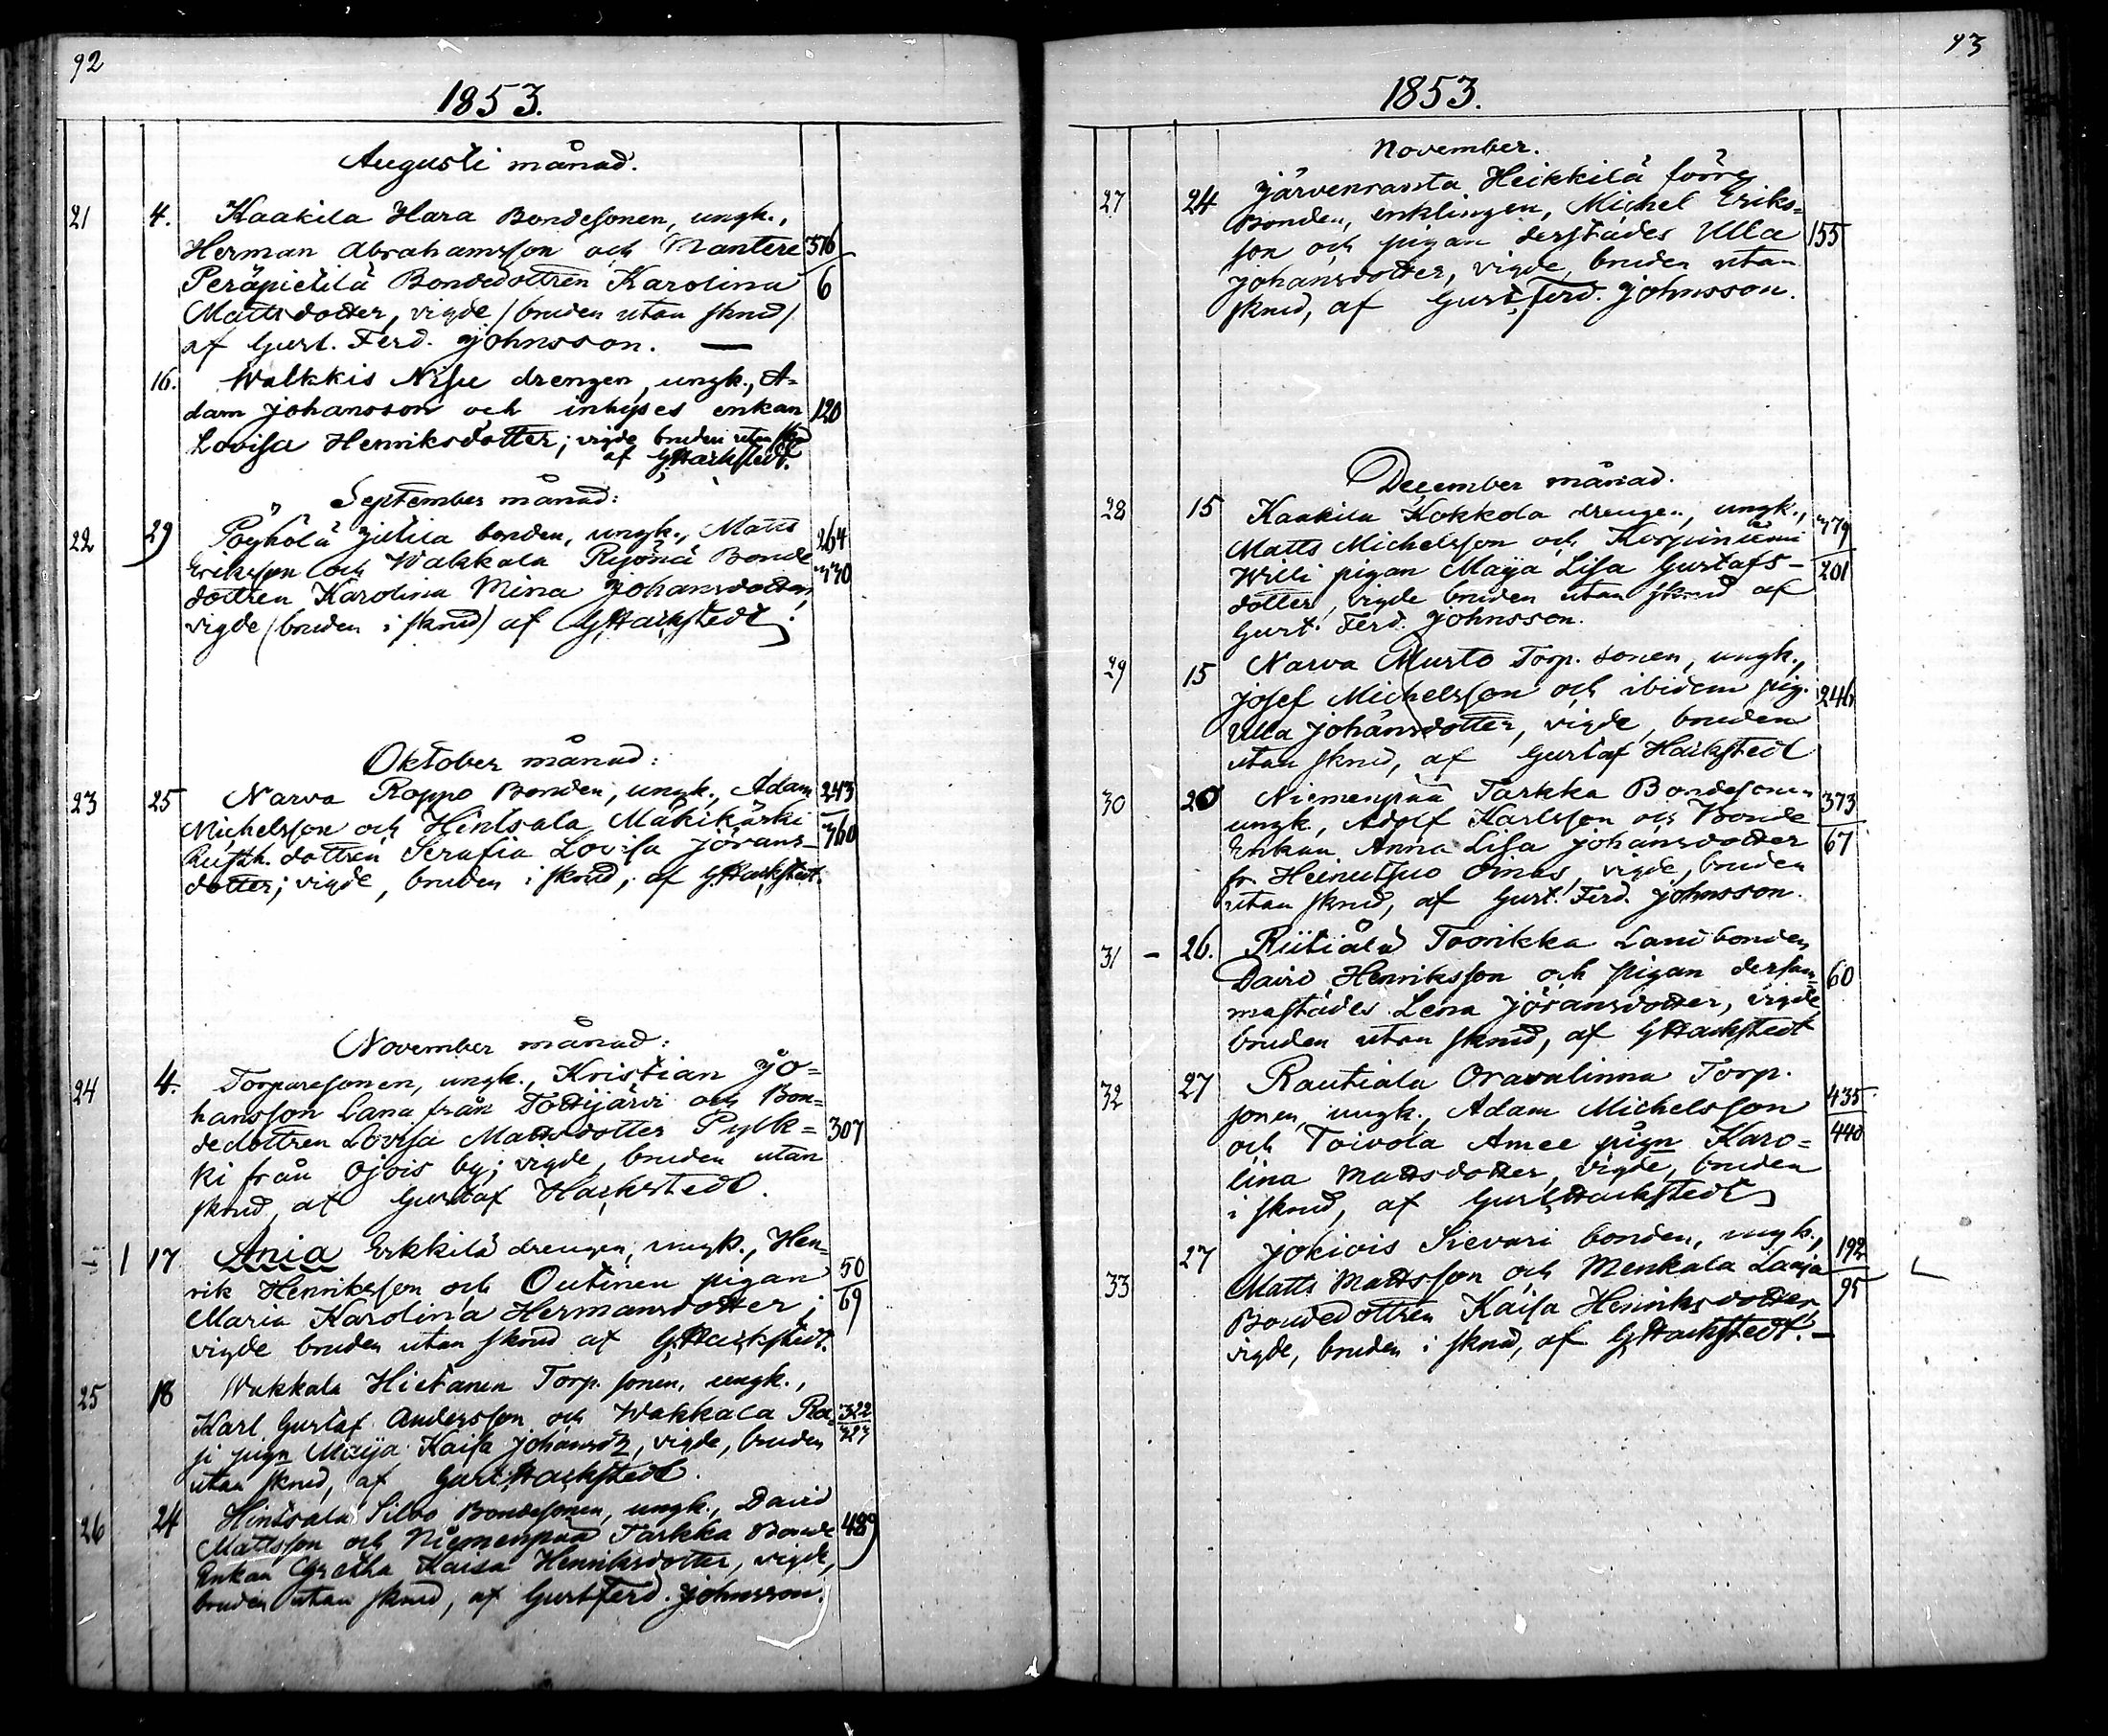 92
1853.
Augusti månad.
21 4. Kaakila Hara Bondesonen, ungk.,
Herman Abrahamsson och Mantere 376
Peräpietilä Bondedottren Karolina 6
Mattsdotter, vigde (bruden utan skrud)
af Gust. Ferd. Johnsson. —
16. Walkkis Nisu drengen, ungk., A=
dam Johansson och inhyses enkan 120
Lovisa Henriksdotter; vigde bruden utan skrud
af GHackstedt.
September månad:
22 29 Pöyhölä Jutila bonden, ungk., Matts 264
Eriksson och Wakkala Bonde
dottren Karolina Mina Johansdotter,
vigde (bruden i skrud) af GHackstedt.
Oktober månad:
23 25 Narva Roppo Bonden, ungk., Adam 243
Michelsson och Hintsala Mäkikärki 360
Rusth. dottren Serafia Lovisa Jörans-
dotter; vigde, bruden i skrud; af GHackstedt.
November månad:
24 4. Torparesonen, ungk., Kristian Jo=
hansson Lana från Tottijärvi och Bon=
dedottren Lovisa Mattsdotter Pylk= 307
ki från Ojois by; vigde, bruden utan
skrud, af Gustaf Hackstedt.
1 17 Ania Erkkilä drengen, ungk., Hen=
rik Henriksson och Outinen pigan 50
Maria Karolina Hermansdotter; 69
vigde bruden utan skrud af GHackstedt.
25 18 Wakkala Hietanen Torp. sonen, ungk.,
Karl Gustaf Andersson och Wakkala Ra- 322
si pign Maija Kaisa Johansdtr, vigde, bruden 323
utan skrud, af Gust Hackstedt.
26 24 Hintsala Silvo Bondesonen, ungk., David 489
Mattsson och Niemenpää Tarkka Bonde
Enkan Gretha Kaisa Henriksdotter, vigde,
bruden utan skrud, af Gust Ferd. Johnsson.
93
1853.
November.
27 24 Järvenranta Heikkilä förre
Bonden, enklingen, Michel Eriks=
son och pigan derstädes Ulla 155
Johansdotter, vigde, bruden utan
skrud, af Gust. Ferd. Johnsson.
December månad.
28 15 Kaakila Kokkola drengen, ungk., 379
Matts Michelsson och Korpiniemi
Willi pigan Maija Lisa Gustafs- 201
dotter, vigde bruden utan skrud af
Gust. Ferd. Johnsson.
29 15 Narva Murto Torp. sonen, ungk.,
Josef Michelsson och ibidem pig. 246
Ulla Johansdotter, vigde, bruden
utan skrud, af Gustaf Hackstedt
30 20 Niemenpää Tarkka Bondesonen 373
ungk., Adolf Karlsson och Bonde
Enkan Anna Lisa Johansdotter 67
fr. Heinusuo Oinas, vigde, bruden
utan skrud, af Gust. Ferd. Johnsson.
31 - 26. Riitiälä Toorikka Landbonden
David Henriksson och pigan dersam= 60
mastädes Lena Jöransdotter, vigde
bruden utan skrud, af GHackstedt
32 27 Rautiala Oravalinna Torp.
sonen, ungk., Adam Michelsson 435
och Toivola Amee pign Karo= 440
lina Mattsdotter, vigde, bruden
i skrud, af Gust Hackstedt
33 27 Jokiois Sievari bonden, ungk., 192
Matts Mattsson och Menkala Laaja 95
Bondedottren Kaisa Henriksdotter,
vigde, bruden i skrud, af GHackstedt. —